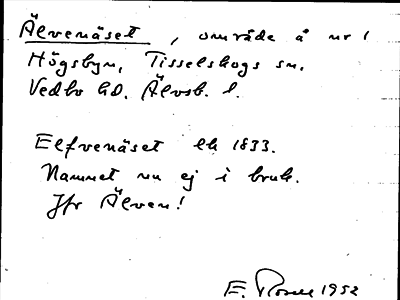 Älvenäset, område å nr 1
Högsbyn, Tisselskogs sn.
Vedbo hd. Älvsb. l.
Elfvenäset lk 1833.
Namnet nu ej i bruk.
Jfr Älven!
E. Rosell 1952